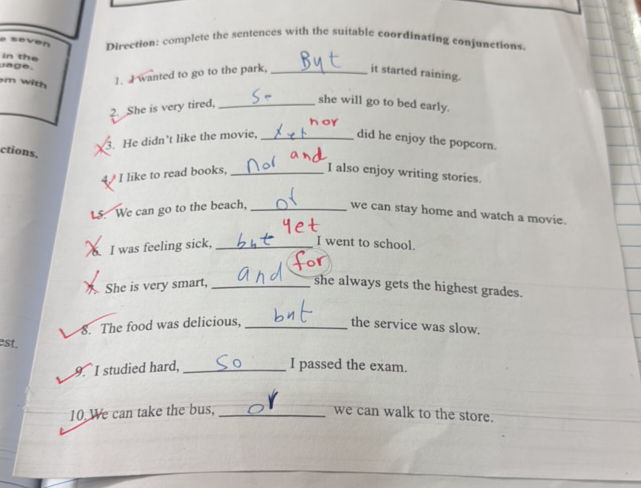 e seven
in the
uage.
em with
ctions.
est.
Direction: complete the sentences with the suitable coordinating conjunctions.
1. I wanted to go to the park, But it started raining.
2. She is very tired, So she will go to bed early.
nor
3. He didn't like the movie, yet did he enjoy the popcorn.
and
4. I like to read books, nor I also enjoy writing stories.
5. We can go to the beach, or we can stay home and watch a movie.
yet
6. I was feeling sick, but I went to school.
for
7. She is very smart, and she always gets the highest grades.
8. The food was delicious, but the service was slow.
9. I studied hard, so I passed the exam.
10. We can take the bus, or we can walk to the store.